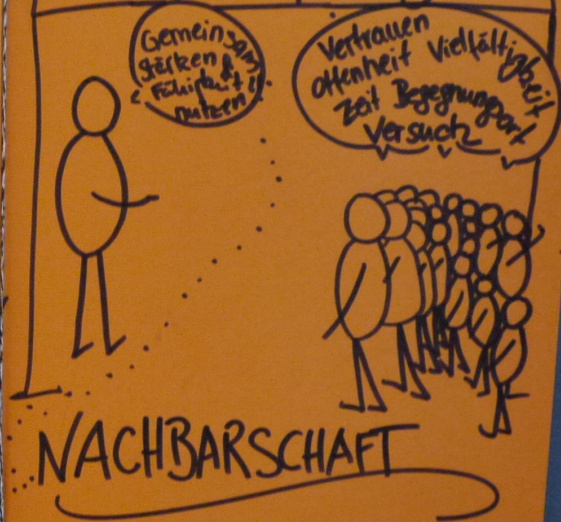 Gemeinsam
Stärken &
Fähigkeit
nutzen!
Vertrauen
Offenheit Vielfältigkeit
Zeit Begegnungsort
Versuch
NACHBARSCHAFT